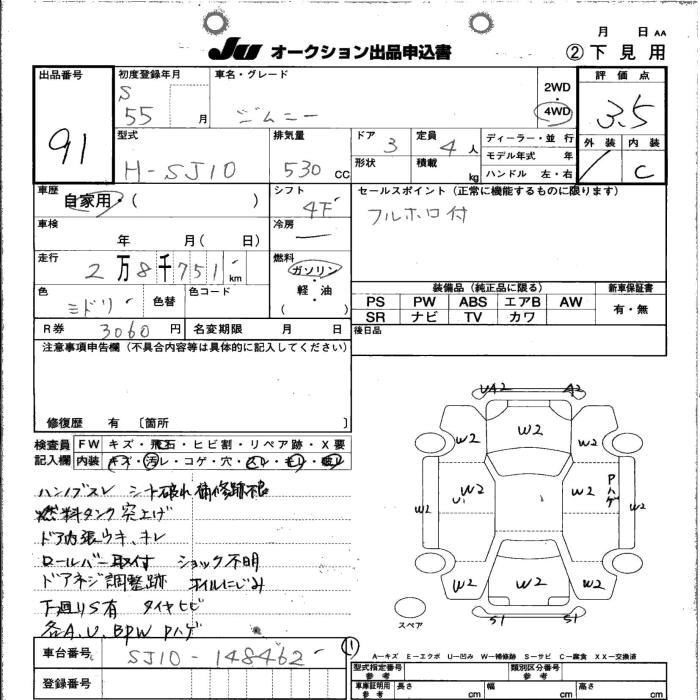 JU オークション出品申込書
月 日 AA
② 下見用
出品番号
91
初度登録年月
S
55 月
車名・グレード
ジムニー
2WD
・
4WD
評価点
3.5
外装 内装
C
型式
H-SJ10
排気量
530 CC
ドア
3
形状
定員
4 人
積載
kg
ディーラー・並行
モデル年式 年
ハンドル 左・右
車歴
自家用・( )
シフト
4F
セールスポイント (正常に機能するものに限ります)
フルホロ付
車検
年 月( 日)
冷房
走行
2万8千751 km
燃料
ガソリン
・
軽油
・
( )
色
ミドリ
色替
色コード
装備品 (純正品に限る)
新車保証書
PS PW ABS エアB AW
SR ナビ TV カワ
有・無
R券 3060 円
名変期限 月 日
後日品
注意事項申告欄 (不具合内容等は具体的に記入してください)
修復歴 有 〔箇所 〕
検査員
記入欄
FW キズ・飛石・ヒビ割・リペア跡・X要
内装 キズ・汚レ・コゲ・穴・
シート破れ 補修跡
燃料タンク突上げ
ドア内張ウキ、キレ
ロールバー取付 ショック不明
ドアネジ調整跡 オイルにじみ
下廻りS有 タイヤヒビ
各A、U、BPW Pハゲ
UA2 A2
W2 W2 W2
W2 W2 W2 Pハゲ W2
W2 W2 W2
S1 S1
スペア
車台番号
SJ10-148462
①
A-キズ E-エクボ U-凹み W-補修跡 S-サビ C-腐食 XX-交換済
登録番号
型式指定番号
参考
類別区分番号
参考
車庫証明用
参考
長さ cm
幅 cm
高さ cm